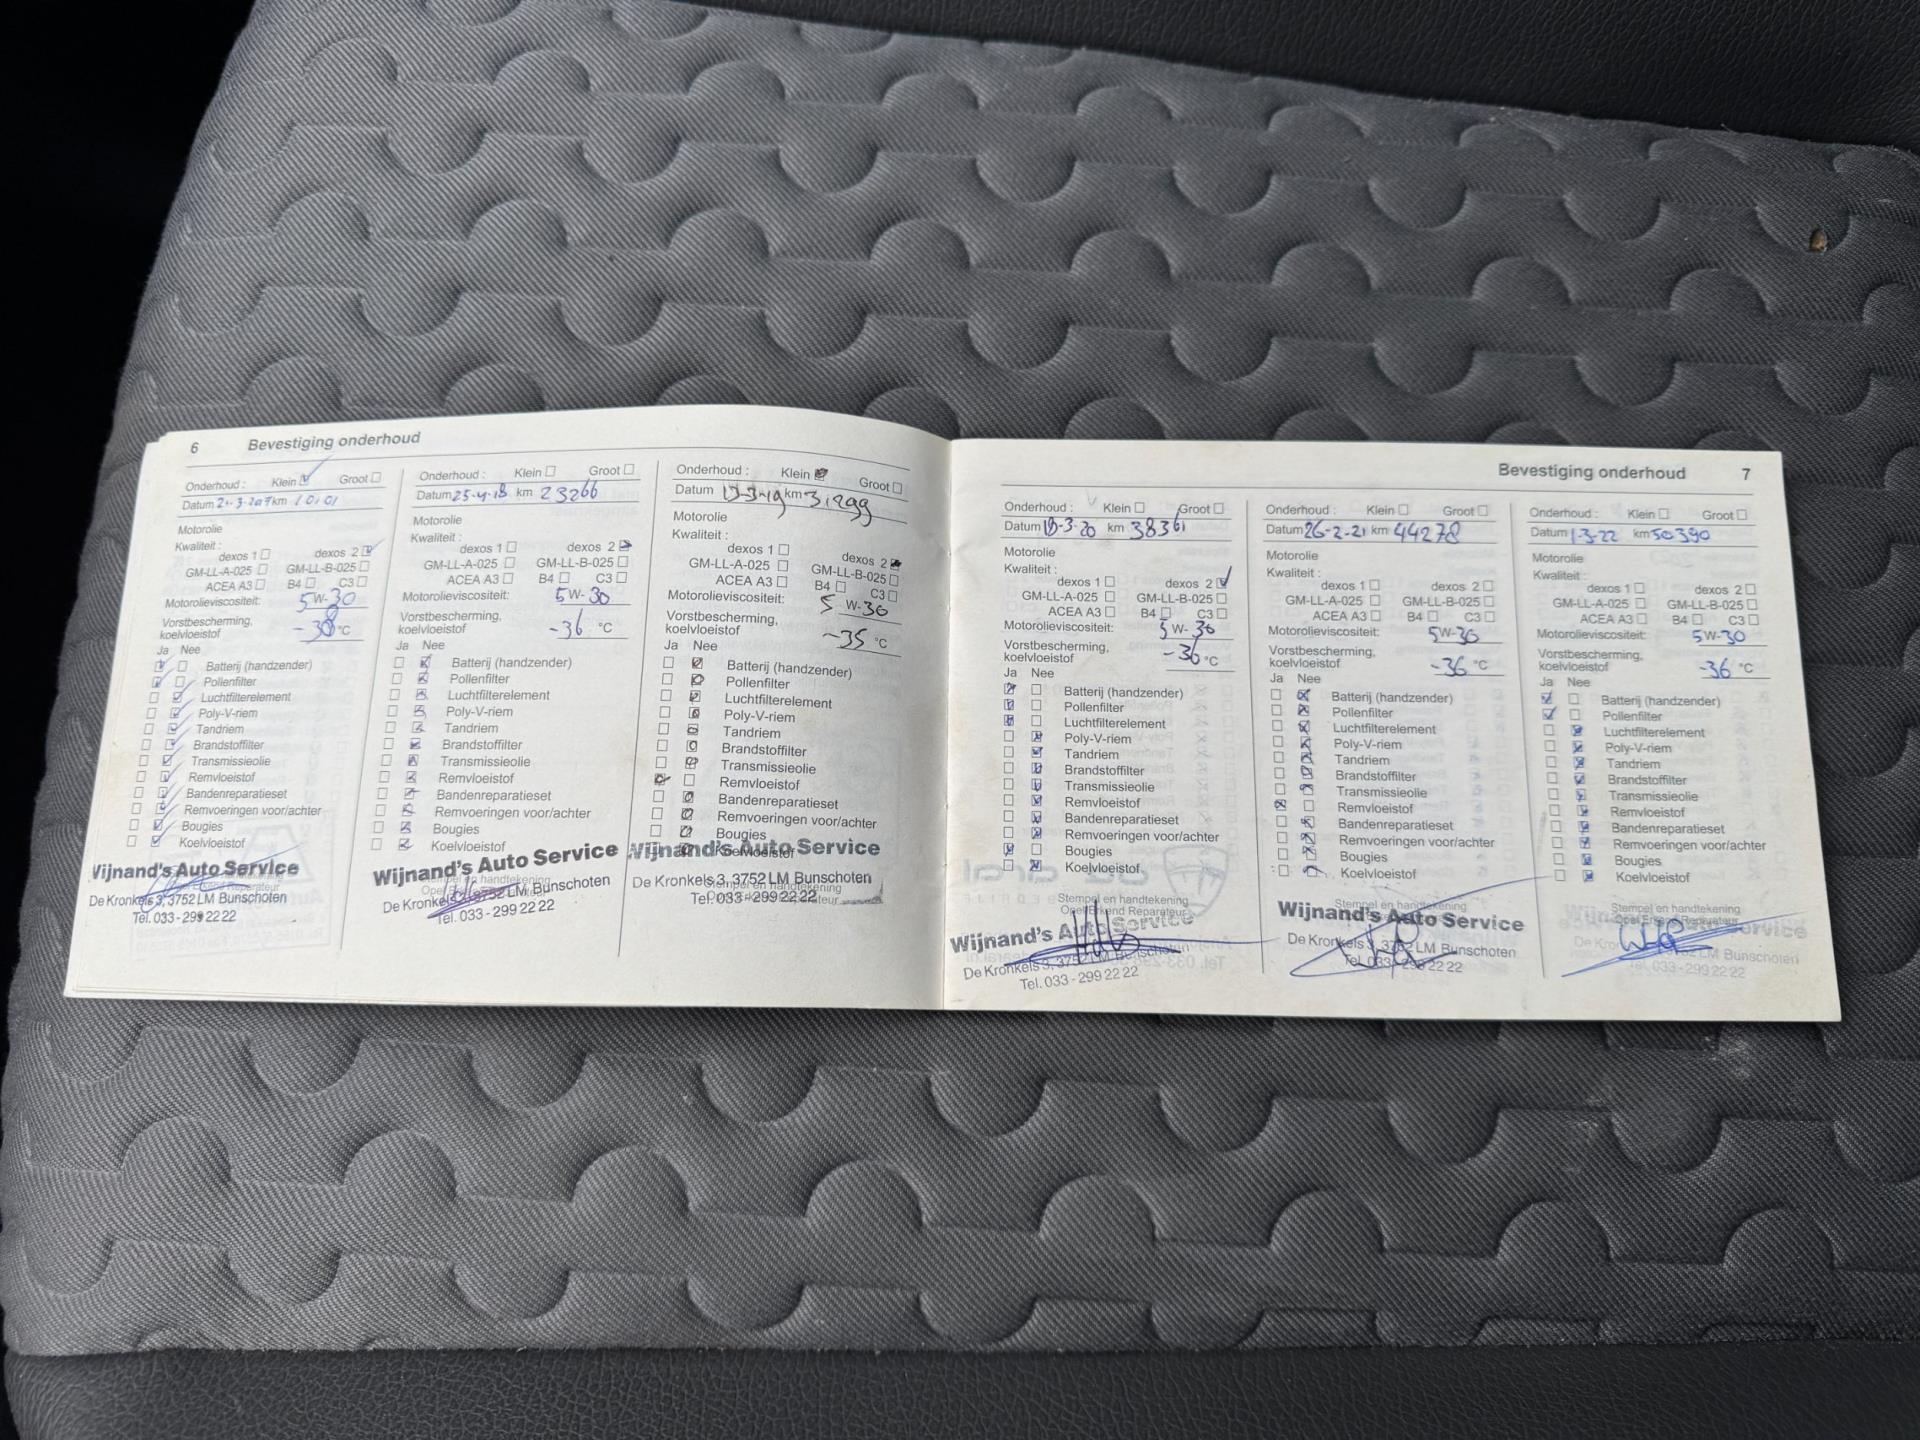 6 Bevestiging onderhoud
Onderhoud : Klein Groot
Datum 21-3-2017 km
Motorolie
Kwaliteit :
dexos 1 dexos 2
GM-LL-A-025 GM-LL-B-025
ACEA A3 B4 C3
Motorolieviscositeit: 5W-30
Vorstbescherming,
koelvloeistof -38 °C
Ja Nee
Batterij (handzender)
Pollenfilter
Luchtfilterelement
Poly-V-riem
Tandriem
Brandstoffilter
Transmissieolie
Remvloeistof
Bandenreparatieset
Remvoeringen voor/achter
Bougies
Koelvloeistof
Wijnand's Auto Service
De Kronkels 3, 3752 LM Bunschoten
Tel. 033 - 299 22 22
Onderhoud : Klein Groot
Datum 25-4-18 km 23266
Motorolie
Kwaliteit :
dexos 1 dexos 2
GM-LL-A-025 GM-LL-B-025
ACEA A3 B4 C3
Motorolieviscositeit: 5W-30
Vorstbescherming,
koelvloeistof -36 °C
Ja Nee
Batterij (handzender)
Pollenfilter
Luchtfilterelement
Poly-V-riem
Tandriem
Brandstoffilter
Transmissieolie
Remvloeistof
Bandenreparatieset
Remvoeringen voor/achter
Bougies
Koelvloeistof
Wijnand's Auto Service
De Kronkels 3, 3752 LM Bunschoten
Tel. 033 - 299 22 22
Onderhoud : Klein Groot
Datum 13-3-19 km 31299
Motorolie
Kwaliteit :
dexos 1 dexos 2
GM-LL-A-025 GM-LL-B-025
ACEA A3 B4 C3
Motorolieviscositeit: 5W-30
Vorstbescherming,
koelvloeistof -35 °C
Ja Nee
Batterij (handzender)
Pollenfilter
Luchtfilterelement
Poly-V-riem
Tandriem
Brandstoffilter
Transmissieolie
Remvloeistof
Bandenreparatieset
Remvoeringen voor/achter
Bougies
Koelvloeistof
Wijnand's Auto Service
De Kronkels 3, 3752 LM Bunschoten
Stempel en handtekening
Tel. 033 - 299 22 22
Bevestiging onderhoud 7
Onderhoud : Klein Groot
Datum 18-3-20 km 38361
Motorolie
Kwaliteit :
dexos 1 dexos 2
GM-LL-A-025 GM-LL-B-025
ACEA A3 B4 C3
Motorolieviscositeit: 5W-30
Vorstbescherming,
koelvloeistof -36 °C
Ja Nee
Batterij (handzender)
Pollenfilter
Luchtfilterelement
Poly-V-riem
Tandriem
Brandstoffilter
Transmissieolie
Remvloeistof
Bandenreparatieset
Remvoeringen voor/achter
Bougies
Koelvloeistof
Stempel en handtekening
Opel Erkend Reparateur
Wijnand's Auto Service
De Kronkels 3, 3752 LM Bunschoten
Tel. 033 - 299 22 22
Onderhoud : Klein Groot
Datum 26-2-21 km 44278
Motorolie
Kwaliteit :
dexos 1 dexos 2
GM-LL-A-025 GM-LL-B-025
ACEA A3 B4 C3
Motorolieviscositeit: 5W-30
Vorstbescherming,
koelvloeistof -36 °C
Ja Nee
Batterij (handzender)
Pollenfilter
Luchtfilterelement
Poly-V-riem
Tandriem
Brandstoffilter
Transmissieolie
Remvloeistof
Bandenreparatieset
Remvoeringen voor/achter
Bougies
Koelvloeistof
Stempel en handtekening
Wijnand's Auto Service
De Kronkels 3, 3752 LM Bunschoten
Tel. 033 - 299 22 22
Onderhoud : Klein Groot
Datum 1-3-22 km 50390
Motorolie
Kwaliteit :
dexos 1 dexos 2
GM-LL-A-025 GM-LL-B-025
ACEA A3 B4 C3
Motorolieviscositeit: 5W-30
Vorstbescherming,
koelvloeistof -36 °C
Ja Nee
Batterij (handzender)
Pollenfilter
Luchtfilterelement
Poly-V-riem
Tandriem
Brandstoffilter
Transmissieolie
Remvloeistof
Bandenreparatieset
Remvoeringen voor/achter
Bougies
Koelvloeistof
Stempel en handtekening
Opel Erkend Reparateur
Wijnand's Auto Service
De Kronkels 3, 3752 LM Bunschoten
Tel. 033 - 299 22 22